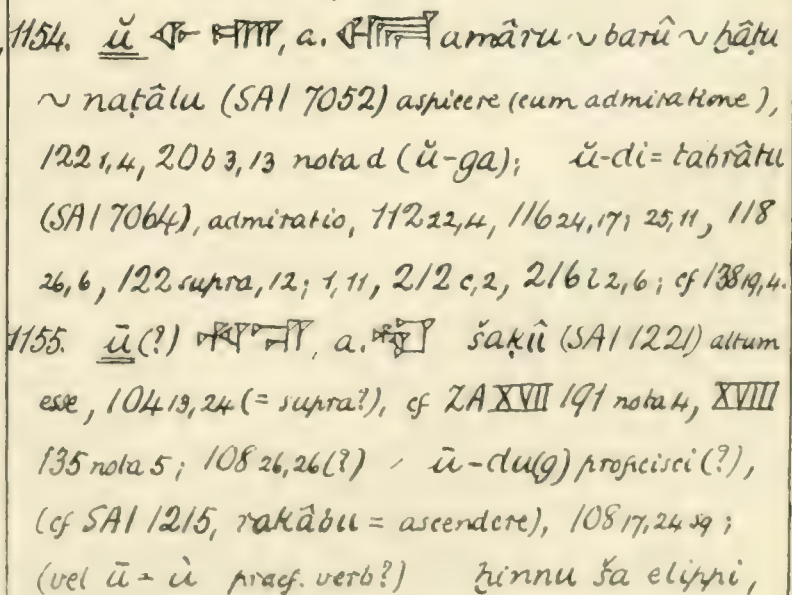 1154. ŭ 𒅆 𒂍, a. amâru ∾ barû ∾ ḫâṭu
∾ naṭâlu (SAI 7052) aspicere (cum admiratione),
122 1,4, 20 b 3,13 nota d (ŭ-ga); ŭ-di = tabrâtu
(SAI 7064), admiratio, 112 22,4, 116 24,17; 25,11, 118
26,6, 122 supra, 12; 1,11, 212 c,2, 216 l 2,6; cf 138 19,4.
1155. ū (?) , a. šaḳû (SAI 1221) altum
esse, 104 13,24 (= supra?), cf ZA XVII 191 nota 4, XVIII
135 nota 5; 108 26,26 (?) ū-du(g) proficisci (?),
(cf SAI 1215, rakâbu = ascendere), 108 17,24 sq;
(vel ū = ù praef. verb?) ḫinnu ša elippi,